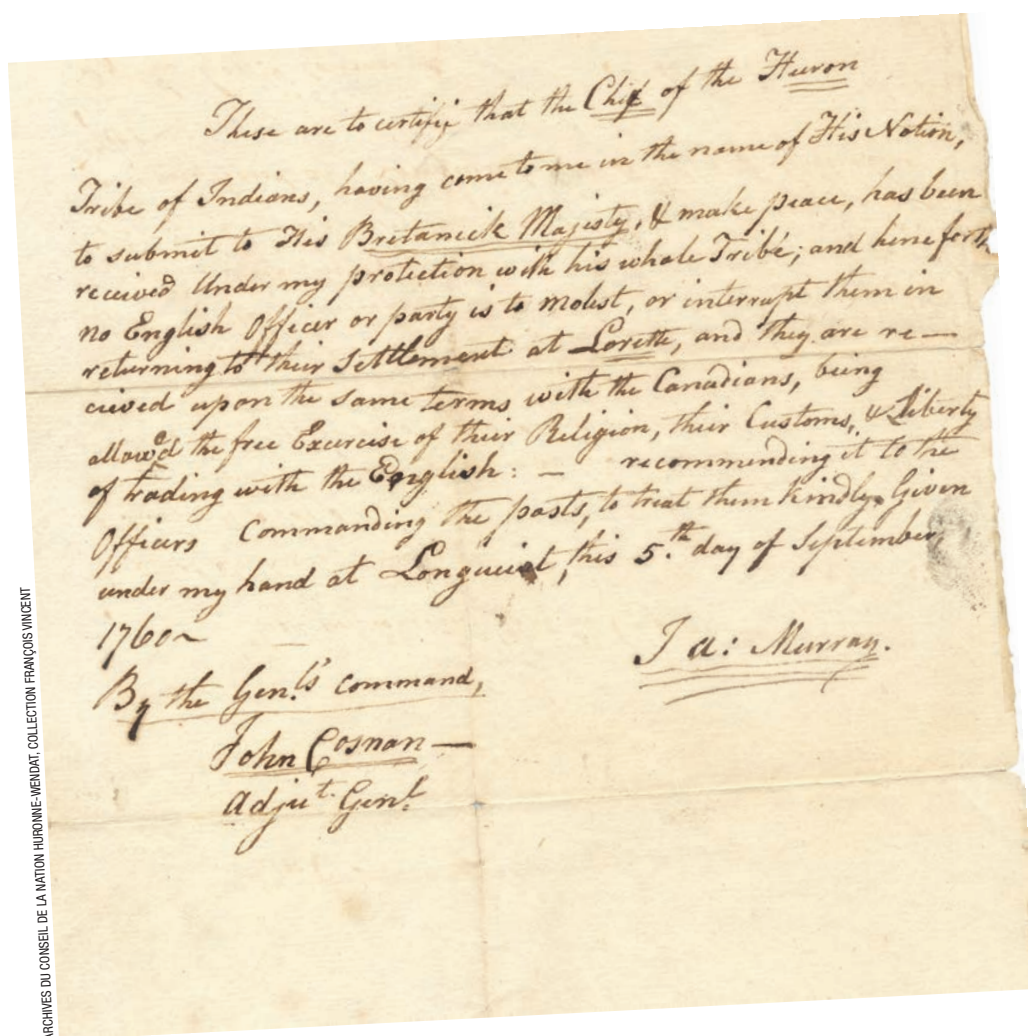 These are to certify that the Chief of the Huron
Tribe of Indians, having come to me in the name of His Nation,
to submit to His Britanick Majisty, & make peace, has been
received Under my protection with his whole Tribe; and henceforth
no English Officer or party is to molest, or interrupt them in
returning to their Settlement at Lorette, and they are re—
cieved upon the same terms with the Canadians, being
allowed the free Exercise of their Religion, their Customs, & Liberty
of trading with the English: — recommending it to the
Officers Commanding the posts, to treat them kindly. Given
under my hand at Longueil, this 5.th day of September,
1760~
Ja: Murray.
By the Genls command,
John Cosnan —
Adjut Genl
ARCHIVES DU CONSEIL DE LA NATION HURONNE-WENDAT, COLLECTION FRANÇOIS VINCENT